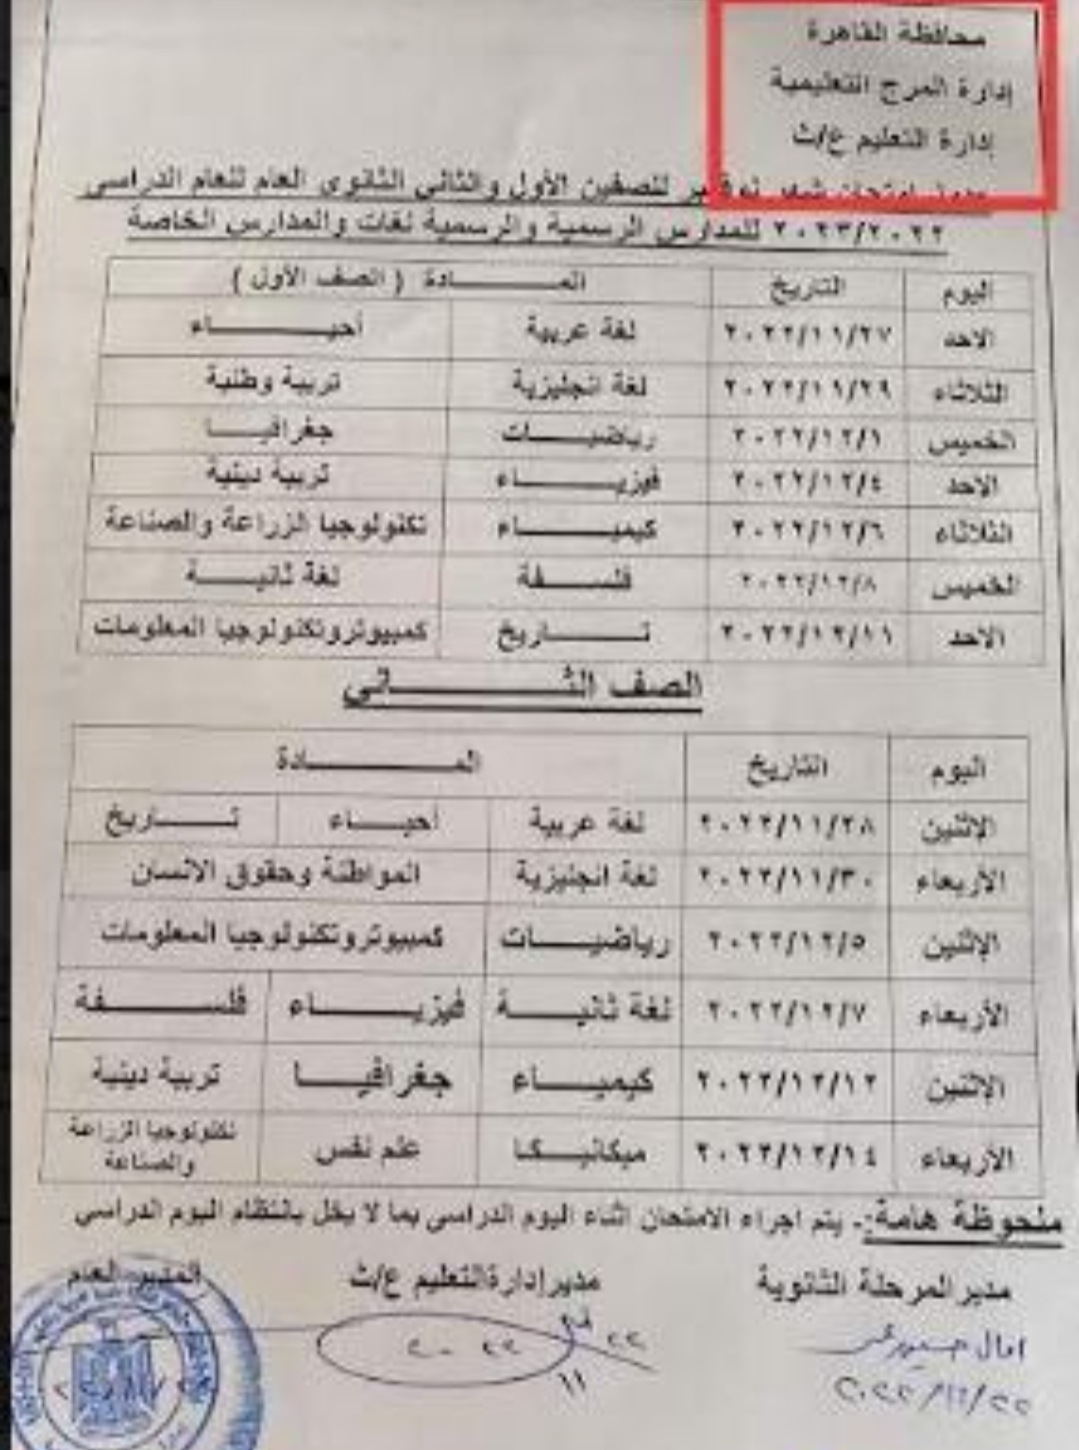 محافظة القاهرة
إدارة المرج التعليمية
إدارة التعليم ع/ث
جدول امتحان شهر نوفمبر للصفين الأول والثاني الثانوي العام للعام الدراسي
٢٠٢٣/٢٠٢٢ للمدارس الرسمية والرسمية لغات والمدارس الخاصة
اليوم التاريخ المـــــــادة ( الصف الأول )
الاحد ٢٠٢٢/١١/٢٧ لغة عربية أحيـــــــاء
الثلاثاء ٢٠٢٢/١١/٢٩ لغة انجليزية تربية وطنية
الخميس ٢٠٢٢/١٢/١ رياضيـــــات جغرافيـــــا
الاحد ٢٠٢٢/١٢/٤ فيزيـــــــاء تربية دينية
الثلاثاء ٢٠٢٢/١٢/٦ كيميـــــــاء تكنولوجيا الزراعة والصناعة
الخميس ٢٠٢٢/١٢/٨ فلســـــفة لغة ثانيـــــة
الاحد ٢٠٢٢/١٢/١١ تـــــــاريخ كمبيوتروتكنولوجيا المعلومات
الصف الثـــــــــاني
اليوم التاريخ المـــــــادة
الإثنين ٢٠٢٢/١١/٢٨ لغة عربية أحيـــــاء تـــــــاريخ
الأربعاء ٢٠٢٢/١١/٣٠ لغة انجليزية المواطنة وحقوق الانسان
الإثنين ٢٠٢٢/١٢/٥ رياضيـــــات كمبيوتروتكنولوجيا المعلومات
الأربعاء ٢٠٢٢/١٢/٧ لغة ثانيـــــة فيزيـــــــاء فلســـــــفة
الإثنين ٢٠٢٢/١٢/١٢ كيميـــــاء جغرافيـــــا تربية دينية
الأربعاء ٢٠٢٢/١٢/١٤ ميكانيـــــكا علم نفس تكنولوجيا الزراعة
والصناعة
ملحوظة هامة:- يتم اجراء الامتحان اثناء اليوم الدراسي بما لا يخل بانتظام اليوم الدراسي
مدير المرحلة الثانوية مدير إدارة التعليم ع/ث المدير العام
امال حسين